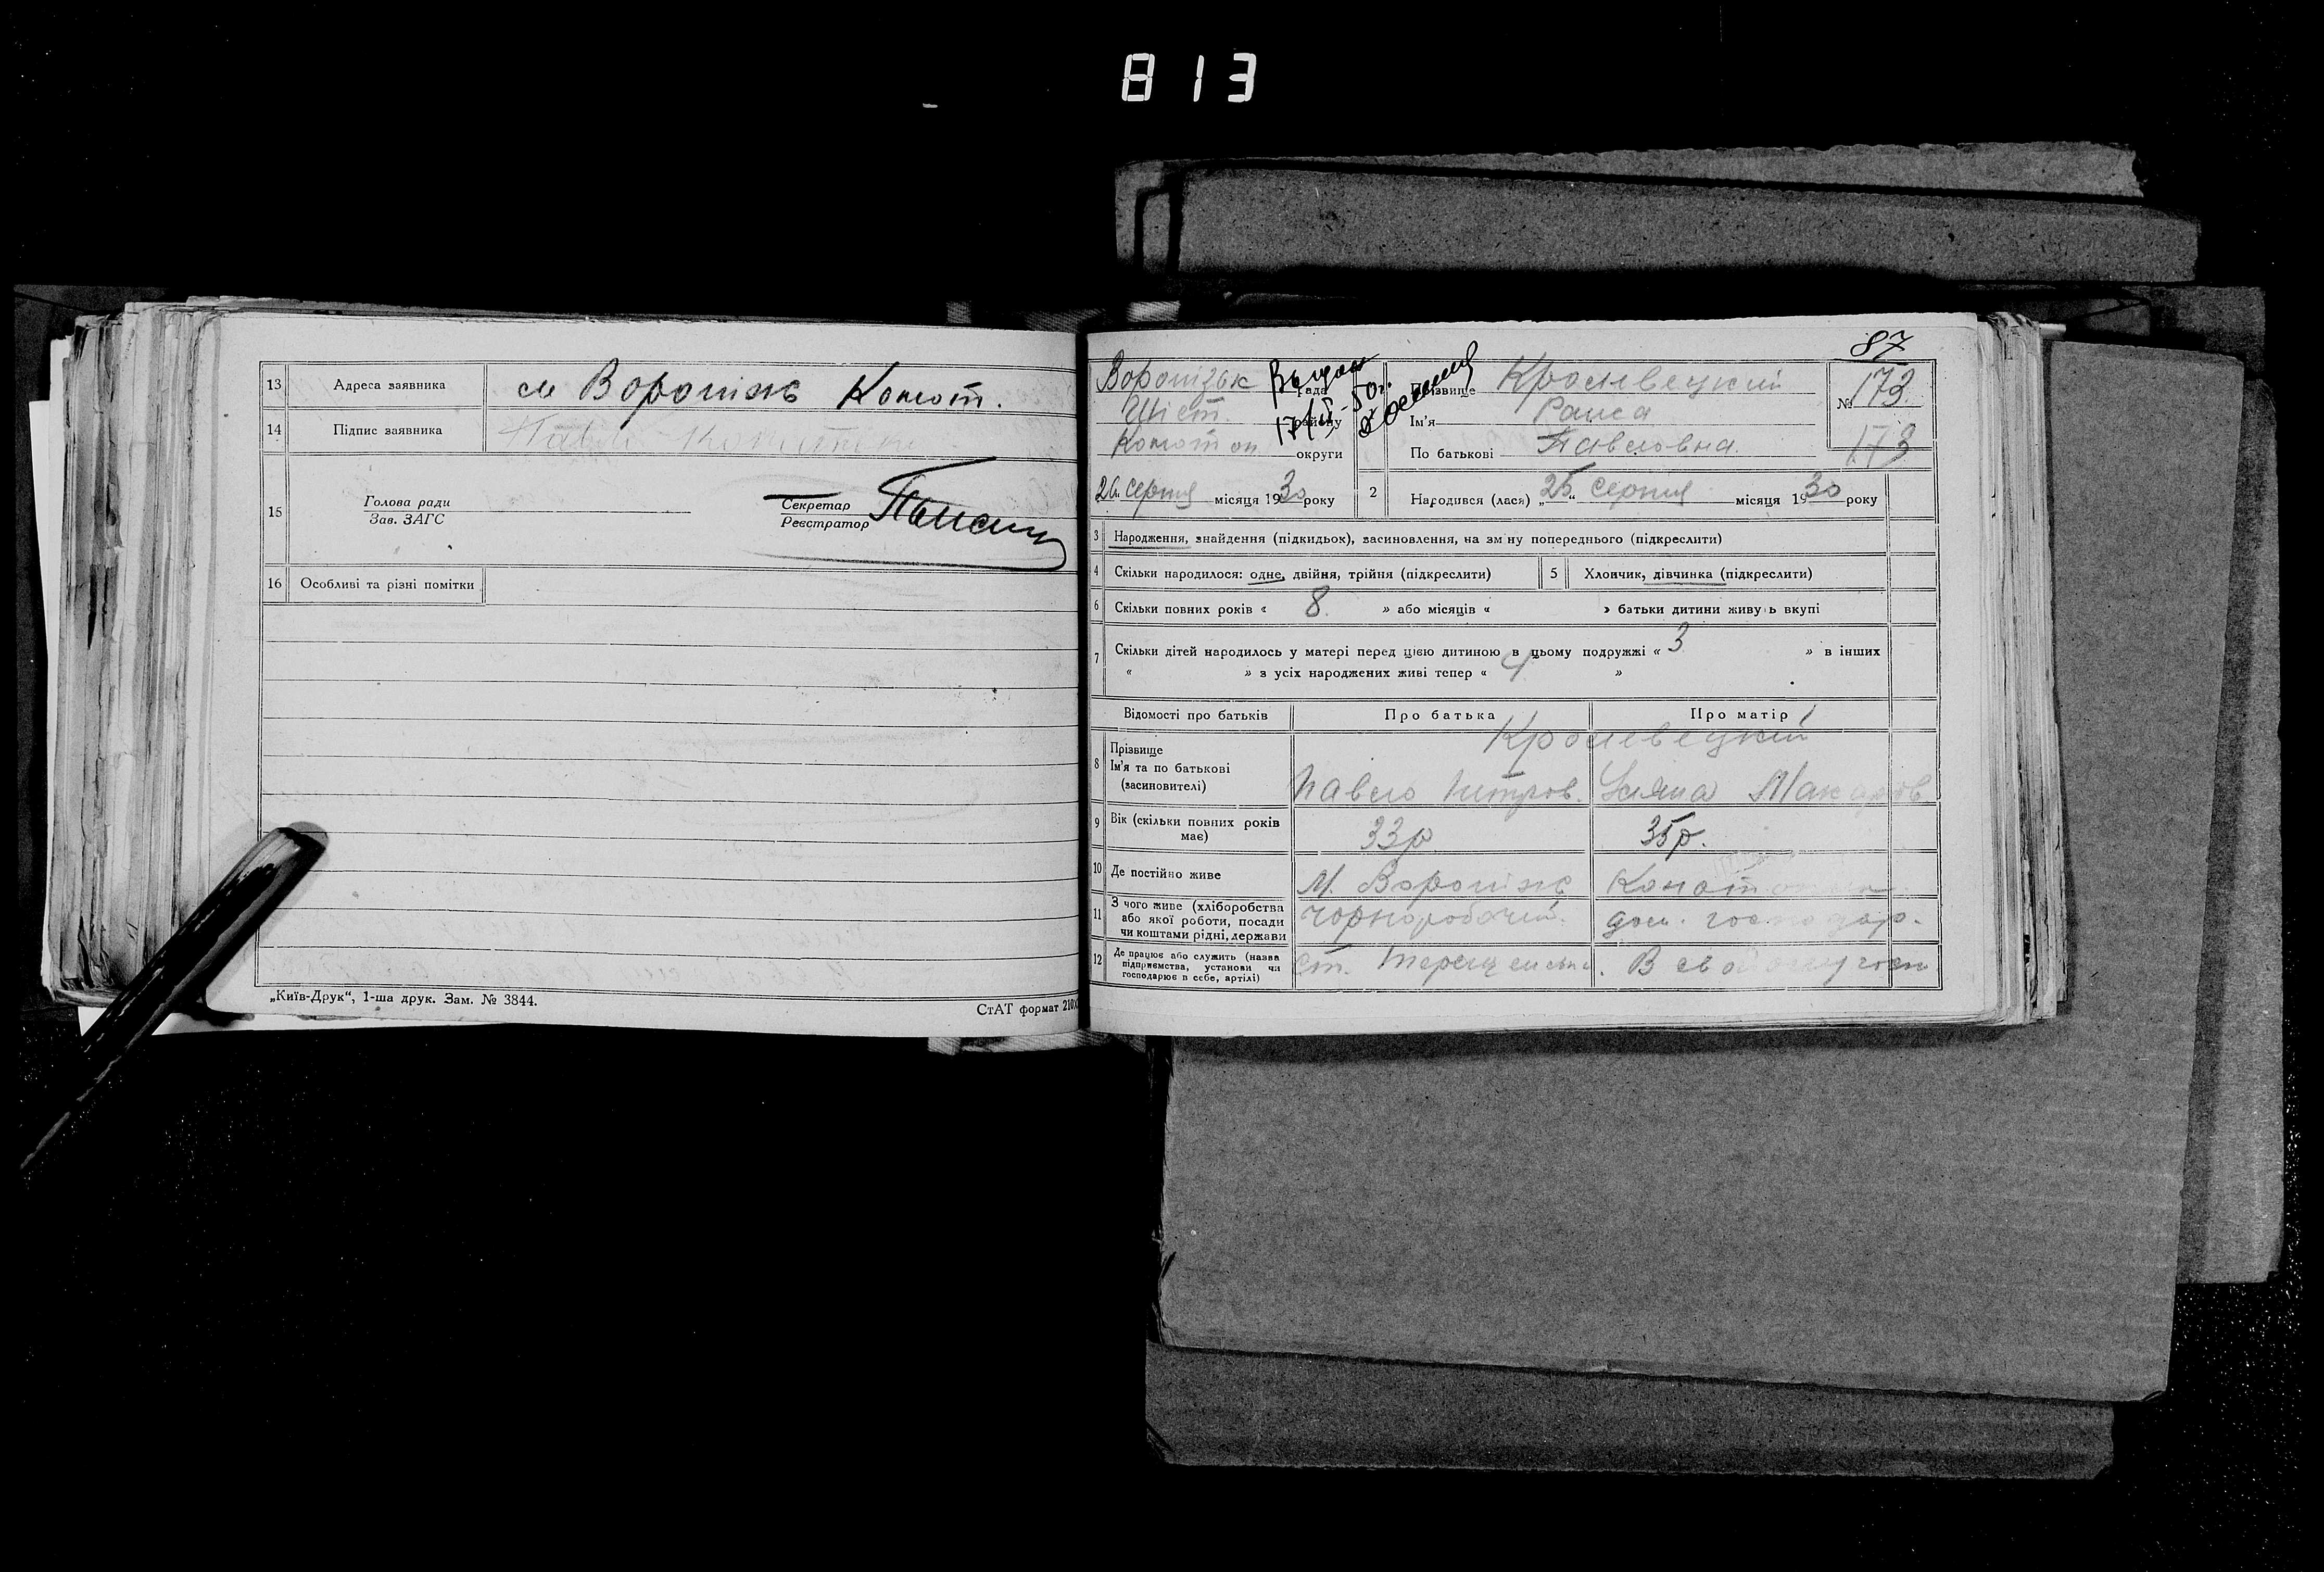 813
13 Адреса заявника м Вороніж Конот.
14 Підпис заявника Павло
15 Голова ради
Зав. ЗАГС
Секретар
Реєстратор
16 Особливі та різні помітки
„Київ-Друк“, 1-ша друк. Зам. № 3844.
СтАТ формат 210
87
Воронізьк рада
Шіст. району
Конотоп округи
17/ 50г.
Прізвище Кролевецкий
Ім'я Раиса
По батькові Павловна
№ 173
173
26. серпня місяця 1930 року
2 Народився (лася) „25“ серпня місяця 1930 року
3 Народження, знайдення (підкидьок), засиновлення, на зміну попереднього (підкреслити)
4 Скільки народилося: одне, двійня, трійня (підкреслити)
5 Хлопчик, дівчинка (підкреслити)
6 Скільки повних років « 8 » або місяців « » батьки дитини живуть вкупі
7 Скільки дітей народилось у матері перед цією дитиною в цьому подружжі « 3 » в інших
« » з усіх народжених живі тепер « 4 »
Відомості про батьків Про батька Про матір
8 Прізвище Кролевецкий
Ім'я та по батькові
(засиновителі) Павло Питров. Уляна Макаров
9 Вік (скільки повних років
має) 33р 35р.
10 Де постійно живе М. Вороніж Конотоп
11 З чого живе (хліборобства
або якої роботи, посади
чи коштами рідні, держави чорноробочий. дом. господар.
12 Де працює або служить (назва
підприємства, установи чи
господарює в себе, артілі) ст. Терещенська. В свойому госп